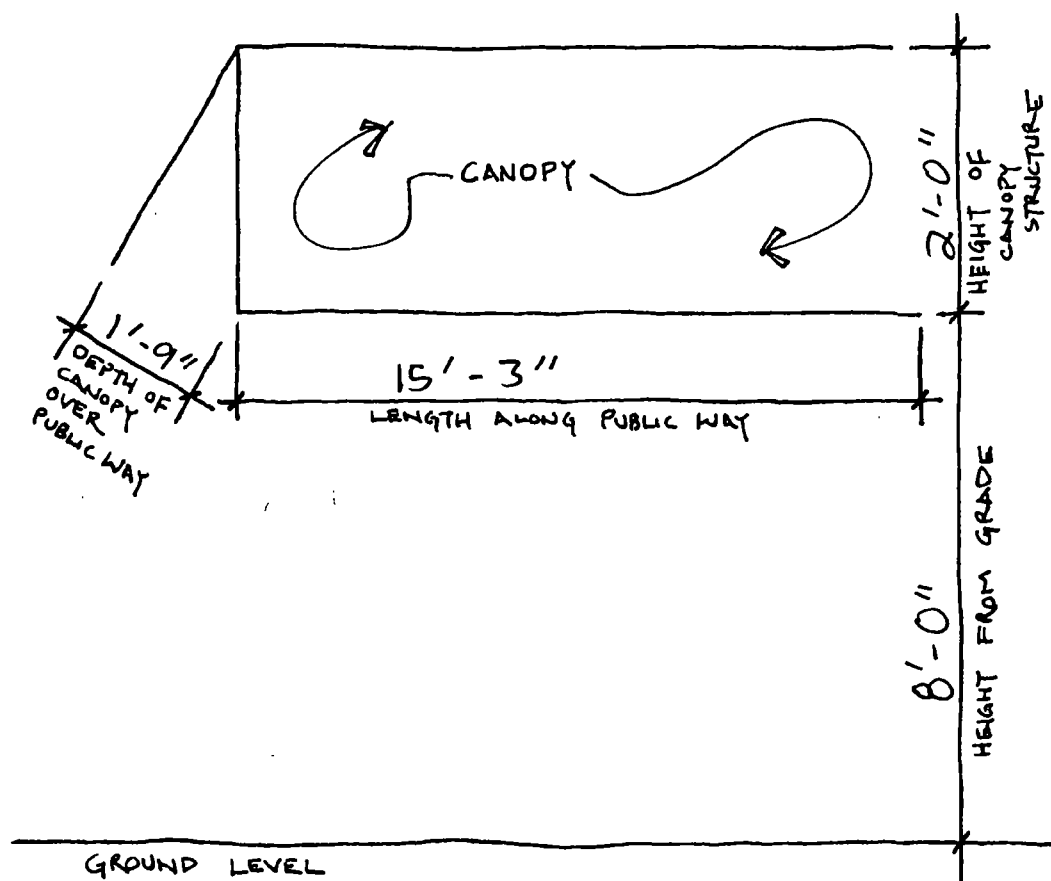 CANOPY
2'-0"
HEIGHT OF
CANOPY
STRUCTURE
1'-9"
DEPTH OF
CANOPY
OVER
PUBLIC WAY
15'-3"
LENGTH ALONG PUBLIC WAY
8'-0"
HEIGHT FROM GRADE
GROUND LEVEL